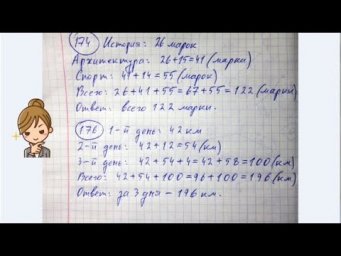 174 История: 26 марок
Архитектура: 26+15=41 (марки)
Спорт: 41+14=55 (марок)
Всего: 26+41+55=67+55=122 (марки)
Ответ: всего 122 марки.
176 1-й день: 42 км
2-й день: 42+12=54 (км)
3-й день: 42+54+4=42+58=100 (км)
Всего: 42+54+100=96+100=196 (км)
Ответ: за 3 дня - 196 км.